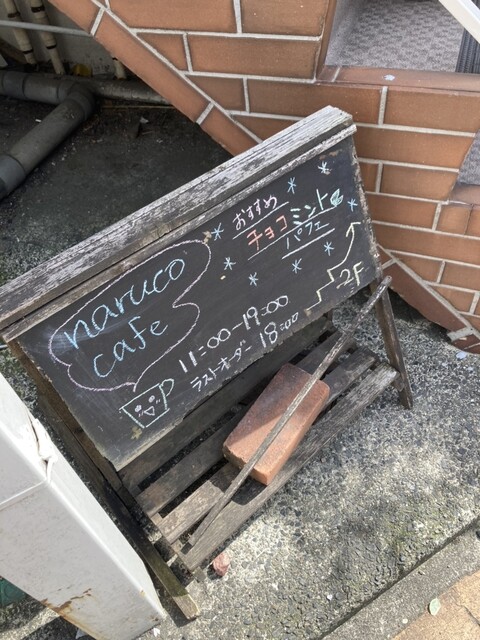 naruco
cafe
11:00-19:00
ラストオーダー 18:00
おすすめ
チョコミント
パフェ
2F